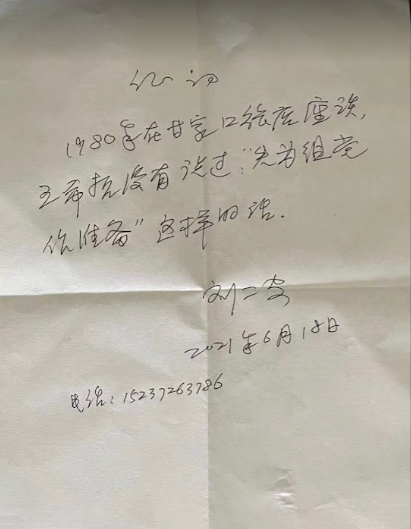 证词
1980年在甘家口旅店座谈，
王希哲没有说过：“先为组党
作准备”这样的话．
刘二安
2021年6月18日
电话：15237263786